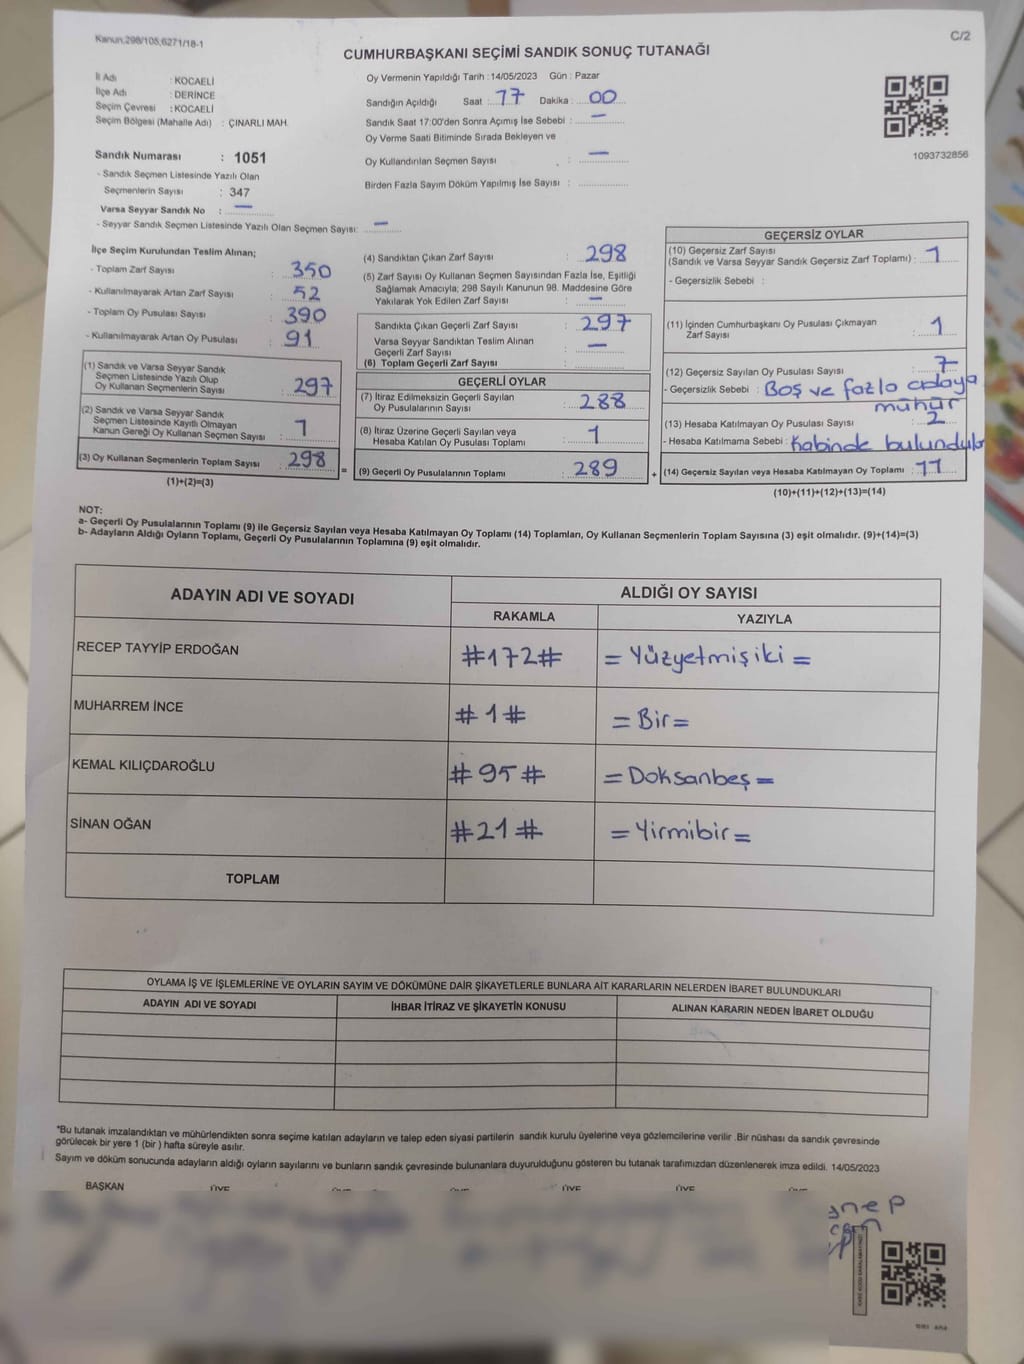 Kanun,298/105,6271/18-1
C/2
CUMHURBAŞKANI SEÇİMİ SANDIK SONUÇ TUTANAĞI
İl Adı : KOCAELİ
İlçe Adı : DERİNCE
Seçim Çevresi : KOCAELİ
Seçim Bölgesi (Mahalle Adı) : ÇINARLI MAH.
Sandık Numarası : 1051
- Sandık Seçmen Listesinde Yazılı Olan
Seçmenlerin Sayısı : 347
Varsa Seyyar Sandık No : —
- Seyyar Sandık Seçmen Listesinde Yazılı Olan Seçmen Sayısı: —
Oy Vermenin Yapıldığı Tarih : 14/05/2023 Gün : Pazar
Sandığın Açıldığı Saat : 17 Dakika : 00
Sandık Saat 17:00'den Sonra Açımış İse Sebebi : —
Oy Verme Saati Bitiminde Sırada Bekleyen ve
Oy Kullandırılan Seçmen Sayısı : —
Birden Fazla Sayım Döküm Yapılmış İse Sayısı :
1093732856
İlçe Seçim Kurulundan Teslim Alınan;
- Toplam Zarf Sayısı : 350
- Kullanılmayarak Artan Zarf Sayısı : 52
- Toplam Oy Pusulası Sayısı : 390
- Kullanılmayarak Artan Oy Pusulası : 91
(1) Sandık ve Varsa Seyyar Sandık
Seçmen Listesinde Yazılı Olup
Oy Kullanan Seçmenlerin Sayısı : 297
(2) Sandık ve Varsa Seyyar Sandık
Seçmen Listesinde Kayıtlı Olmayan
Kanun Gereği Oy Kullanan Seçmen Sayısı : 1
(3) Oy Kullanan Seçmenlerin Toplam Sayısı : 298
(1)+(2)=(3)
(4) Sandıktan Çıkan Zarf Sayısı : 298
(5) Zarf Sayısı Oy Kullanan Seçmen Sayısından Fazla İse, Eşitliği
Sağlamak Amacıyla; 298 Sayılı Kanunun 98. Maddesine Göre
Yakılarak Yok Edilen Zarf Sayısı : —
Sandıkta Çıkan Geçerli Zarf Sayısı : 297
Varsa Seyyar Sandıktan Teslim Alınan
Geçerli Zarf Sayısı : —
(6) Toplam Geçerli Zarf Sayısı :
=
GEÇERLİ OYLAR
(7) İtiraz Edilmeksizin Geçerli Sayılan
Oy Pusulalarının Sayısı : 288
(8) İtiraz Üzerine Geçerli Sayılan veya
Hesaba Katılan Oy Pusulası Toplamı : 1
(9) Geçerli Oy Pusulalarının Toplamı : 289
+
GEÇERSİZ OYLAR
(10) Geçersiz Zarf Sayısı
(Sandık ve Varsa Seyyar Sandık Geçersiz Zarf Toplamı) : 1
- Geçersizlik Sebebi :
(11) İçinden Cumhurbaşkanı Oy Pusulası Çıkmayan
Zarf Sayısı : 1
(12) Geçersiz Sayılan Oy Pusulası Sayısı : 7
- Geçersizlik Sebebi : Boş ve fazla adaya
mühür
(13) Hesaba Katılmayan Oy Pusulası Sayısı : 2
- Hesaba Katılmama Sebebi : Kabinde bulundular
(14) Geçersiz Sayılan veya Hesaba Katılmayan Oy Toplamı : 11
(10)+(11)+(12)+(13)=(14)
NOT:
a- Geçerli Oy Pusulalarının Toplamı (9) ile Geçersiz Sayılan veya Hesaba Katılmayan Oy Toplamı (14) Toplamları, Oy Kullanan Seçmenlerin Toplam Sayısına (3) eşit olmalıdır. (9)+(14)=(3)
b- Adayların Aldığı Oyların Toplamı, Geçerli Oy Pusulalarının Toplamına (9) eşit olmalıdır.
ADAYIN ADI VE SOYADI ALDIĞI OY SAYISI
RAKAMLA YAZIYLA
RECEP TAYYİP ERDOĞAN #172# = Yüzyetmişiki =
MUHARREM İNCE #1# = Bir =
KEMAL KILIÇDAROĞLU #95# = Doksanbeş =
SİNAN OĞAN #21# = Yirmibir =
TOPLAM
OYLAMA İŞ VE İŞLEMLERİNE VE OYLARIN SAYIM VE DÖKÜMÜNE DAİR ŞİKAYETLERLE BUNLARA AİT KARARLARIN NELERDEN İBARET BULUNDUKLARI
ADAYIN ADI VE SOYADI İHBAR İTİRAZ VE ŞİKAYETİN KONUSU ALINAN KARARIN NEDEN İBARET OLDUĞU
*Bu tutanak imzalandıktan ve mühürlendikten sonra seçime katılan adayların ve talep eden siyasi partilerin sandık kurulu üyelerine veya gözlemcilerine verilir .Bir nüshası da sandık çevresinde
görülecek bir yere 1 (bir ) hafta süreyle asılır.
Sayım ve döküm sonucunda adayların aldığı oyların sayılarını ve bunların sandık çevresinde bulunanlara duyurulduğunu gösteren bu tutanak tarafımızdan düzenlenerek imza edildi. 14/05/2023
BAŞKAN ÜYE ÜYE ÜYE ÜYE ÜYE